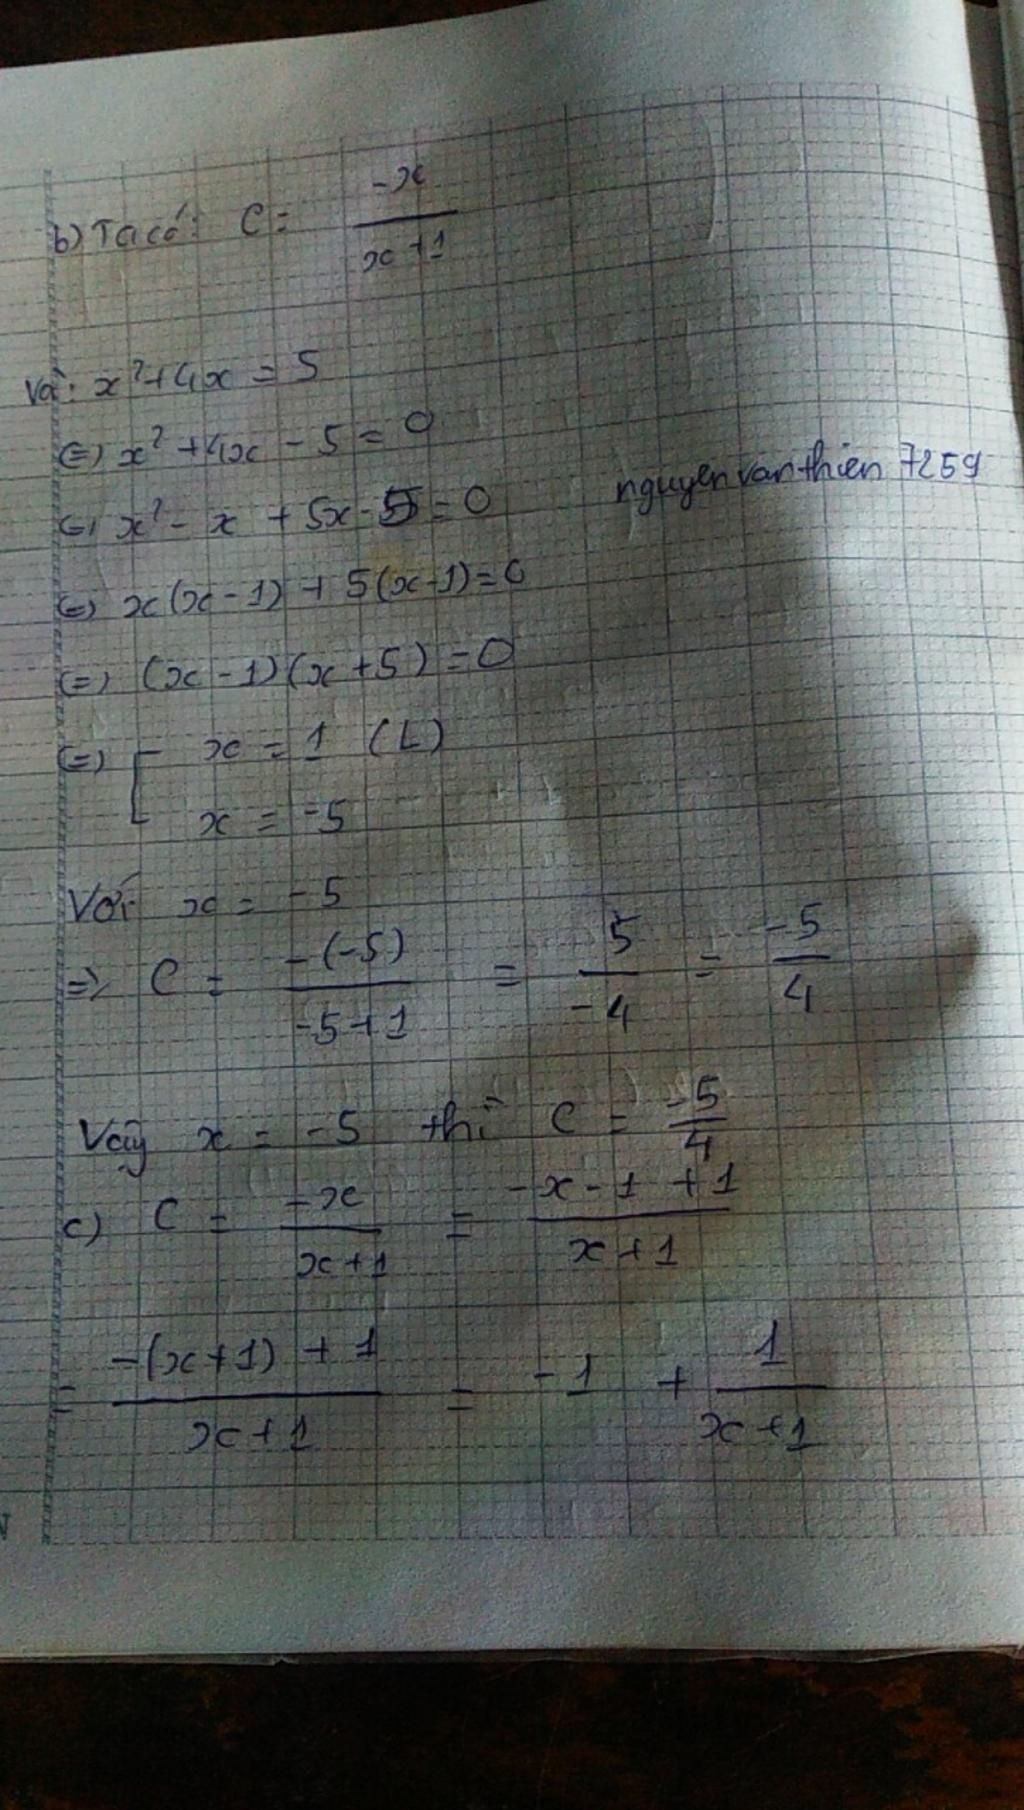 b) Ta có: C = \frac{-x}{x+1}
Và: x² + 4x = 5
(=) x² + 4x - 5 = 0
(=) x² - x + 5x - 5 = 0
nguyenvanthien 7259
(=) x(x-1) + 5(x-1) = 0
(=) (x-1)(x+5) = 0
(=) [ x = 1 (L)
x = -5
Với x = -5
=> C = \frac{-(-5)}{-5+1} = \frac{5}{-4} = \frac{-5}{4}
Vậy x = -5 thì C = \frac{-5}{4}
c) C = \frac{-x}{x+1} = \frac{-x-1+1}{x+1}
= \frac{-(x+1)+1}{x+1} = -1 + \frac{1}{x+1}